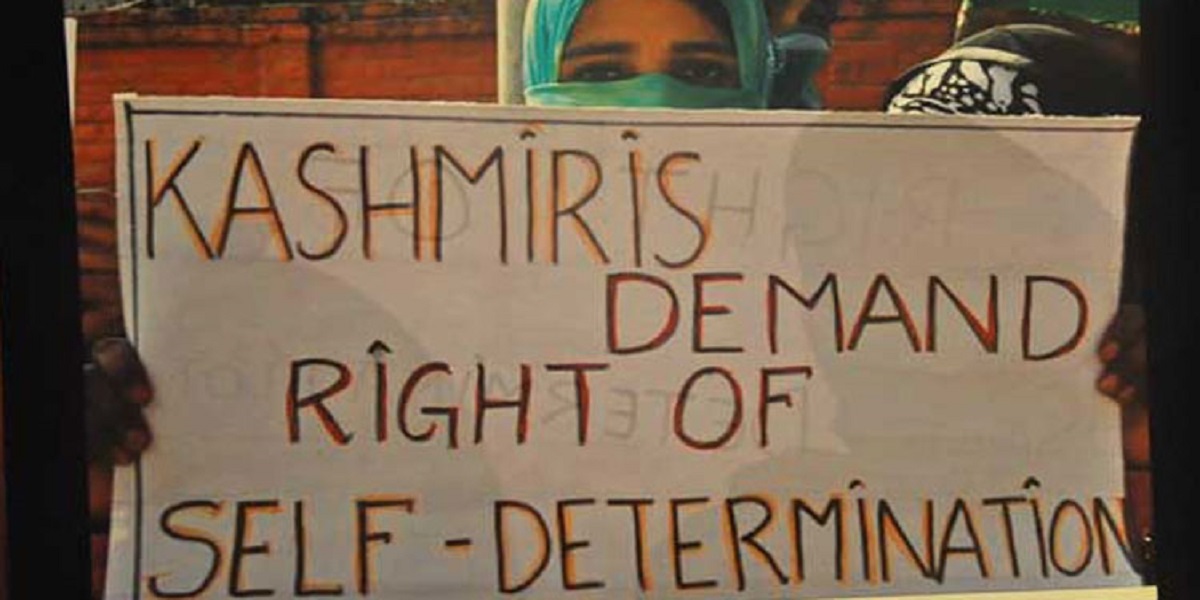 KASHMIRIS
DEMAND
RIGHT OF
SELF-DETERMINATION